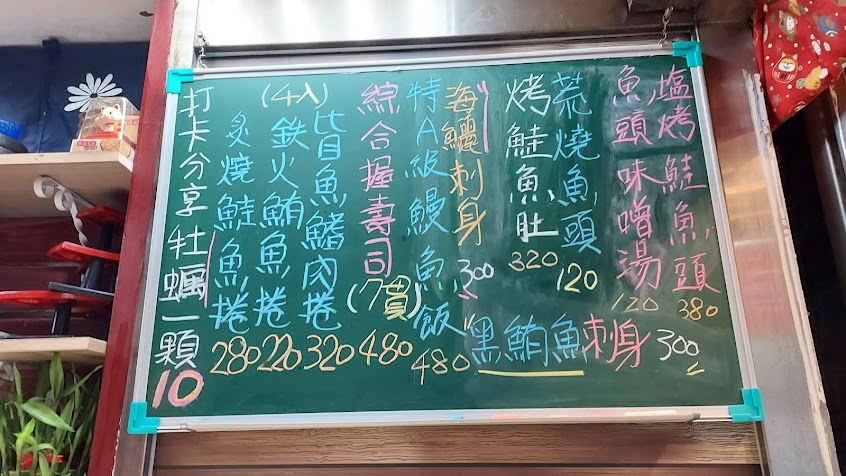 塩烤鮭魚頭 380
魚頭味噌湯 120
荒燒魚頭 120
烤鮭魚肚 320
海鱺刺身 300
特A級鰻魚飯 480
綜合握壽司(7貫) 480
(4入)
比目魚鰭肉捲 320
鉄火鮪魚捲 220
炙燒鮭魚捲 280
打卡分享牡蠣一顆10
黑鮪魚刺身 300